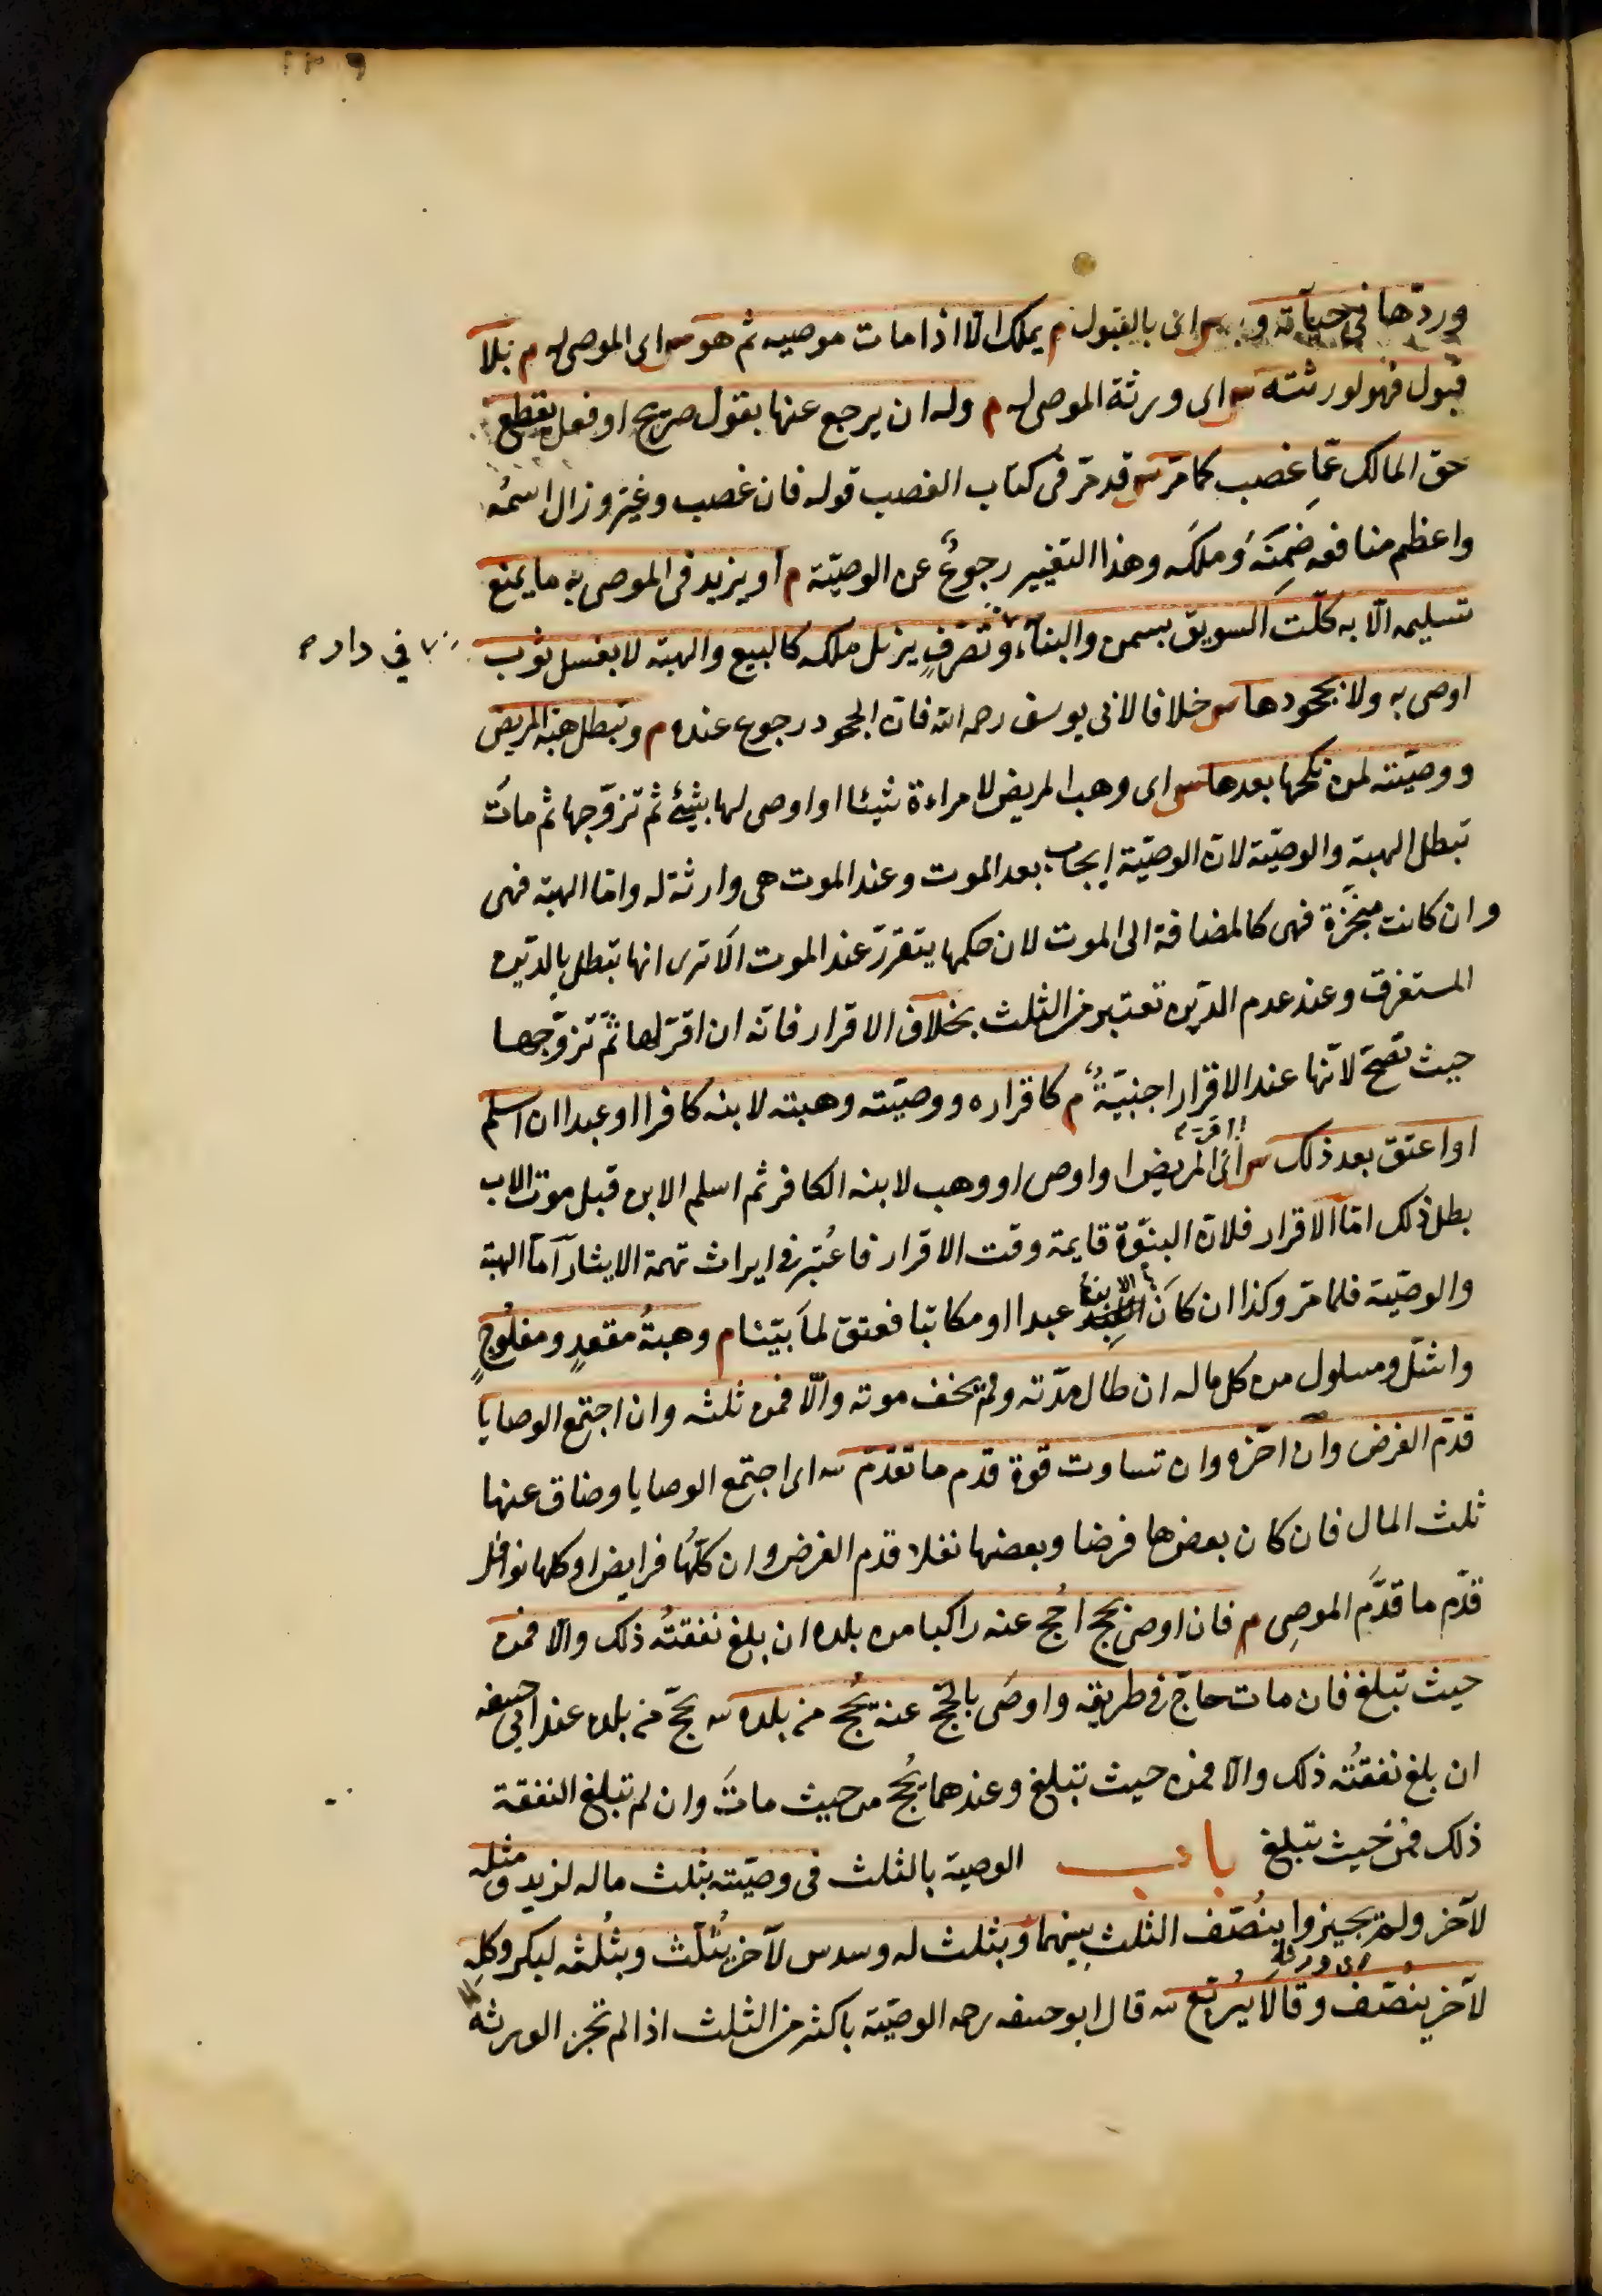 وردّها في حياته وبه س اى بالقبول م يملك الّا اذا مات موصيه ثم هو س اى الموصى له م بلا
قبول فهو لورثته س اى ورثة الموصى له م وله ان يرجع عنها بقول صريح او فعل يقطع
حق المالك عمّا غصب كما مرّ س قد مرّ فى كتاب الغصب قوله فان غصب وغيّر وزال اسمه
واعظم منافعه ضمنه وملكه وهذا التغيير رجوع عن الوصيّة م او يزيد فى الموصى به ما يمنع
تسليمه الّا به كلتّ السويق بسمن والبناء وتصرّف يزيل ملكه كالبيع والهبة لا بغسل ثوب
في داره
اوصى به ولا بجحودها س خلافا لابى يوسف رحمه الله فان الجحود رجوع عنده م وتبطل هبة المريض
ووصيّته لمن نكحها بعدها س اى وهب المريض لامراءة شيئا او اوصى لها بشيئ ثم تزوّجها ثم مات
تبطل الهبة والوصيّة لانّ الوصيّة ايجاب بعد الموت وعند الموت هى وارثة له وامّا الهبة فهى
وان كانت منجّزة فهى كالمضافة الى الموت لان حكمها يتقرّر عند الموت الا ترى انها تبطل بالدّين
المستغرق وعند عدم الدّين تعتبر من الثلث بخلاف الاقرار فانّه ان اقرّ لها ثمّ تزوّجها
حيث تصحّ لانّها عند الاقرار اجنبيّة م كاقراره ووصيّته وهبته لابنه كافرا او عبدا ان اسلم
او اعتق بعد ذلك س اى المريض او اوصى او وهب لابنه الكافر ثم اسلم الابن قبل موت الاب
اقرّ
بطل ذلك امّا الاقرار فلانّ البنوّة قايمة وقت الاقرار فاعتبر فى ايراث تهمة الايثار امّا الهبة
والوصيّة فلما مرّ وكذا ان كان الابن عبدا او مكاتبا فعتق لما بيّنا م وهبة مقعد ومفلوج
واشلّ ومسلول من كل ماله ان طال مدّته ولم يخف موته والّا فمن ثلثه وان اجتمع الوصايا
قدّم الفرض وان اخّره وان تساوت قوة قدّم ما تقدّم س اى اجتمع الوصايا وضاق عنها
ثلث المال فان كان بعضها فرضا وبعضها نفلا قدم الفرض وان كلّها فرايض او كلها نوافل
قدّم ما قدّم الموصى م فان اوصى بحج احج عنه راكبا من بلده ان بلغ نفقته ذلك والا فمن
حيث تبلغ فان مات حاج فى طريقه واوصى بالحجّ عنه يحج من بلده س يحجّ من بلده عند ابى حنيفه
ان بلغ نفقته ذلك والا فمن حيث تبلغ وعندهما يحج من حيث مات وان لم تبلغ النفقة
ذلك فمن حيث تبلغ باب الوصية بالثلث فى وصيّته بثلث ماله لزيد ومثله
لآخر ولم يجيزوا ينصّف الثلث بينهما وبثلث له وسدس لآخر يثلّث وبثلثه لبكر وكله
لآخر ينصّف وقالا يربّع س قال ابو حنيفه رحمه الوصيّة باكثر من الثلث اذا لم تجز الورثة